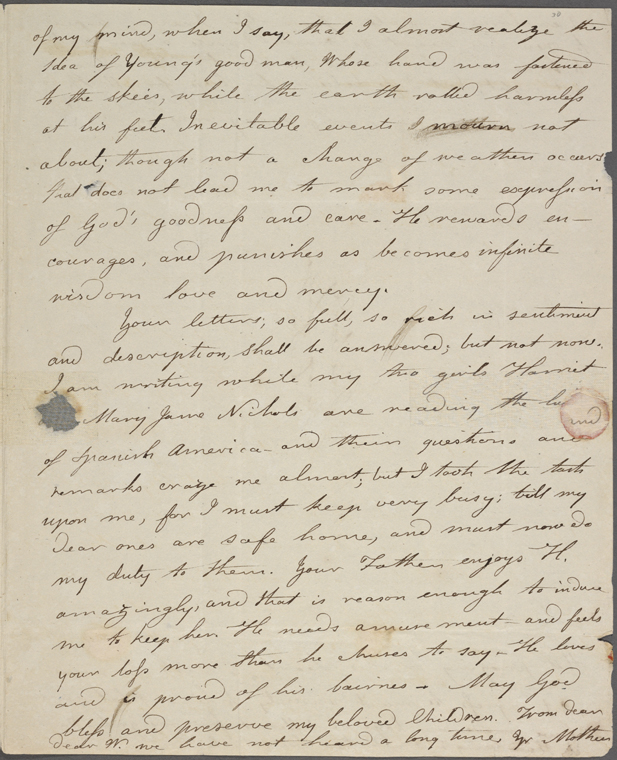 of my mind, when I say, that I almost realize the
idea of Young's good man, Whose hand was fastened
to the skies, while the earth rolled harmless
at his feet. Inevitable events I mourn not
about; though not a change of weather occurs
that does not lead me to mark some expression
of God's goodness and care - He rewards en-
courages, and punishes as becomes infinite
wisdom love and mercy.
Your letters, so full, so rich in sentiment
and description, shall be answered; but not now.
I am writing while my two girls Harriet
Mary Jane Nichols are reading the
of Spanish America - and their questions and
remarks craze me almost; but I took the task
upon me, for I must keep very busy; till my
dear ones are safe home, and must now do
my duty to them. Your Father enjoys H.
amazingly, and that is reason enough to induce
me to keep her. He needs amusement - and feels
your loss more than he chuses to say - He loves
and is proud of his bairnes - May God
bless and preserve my beloved Children. From dear
dear W. we have not heard a long time, Yr Mother